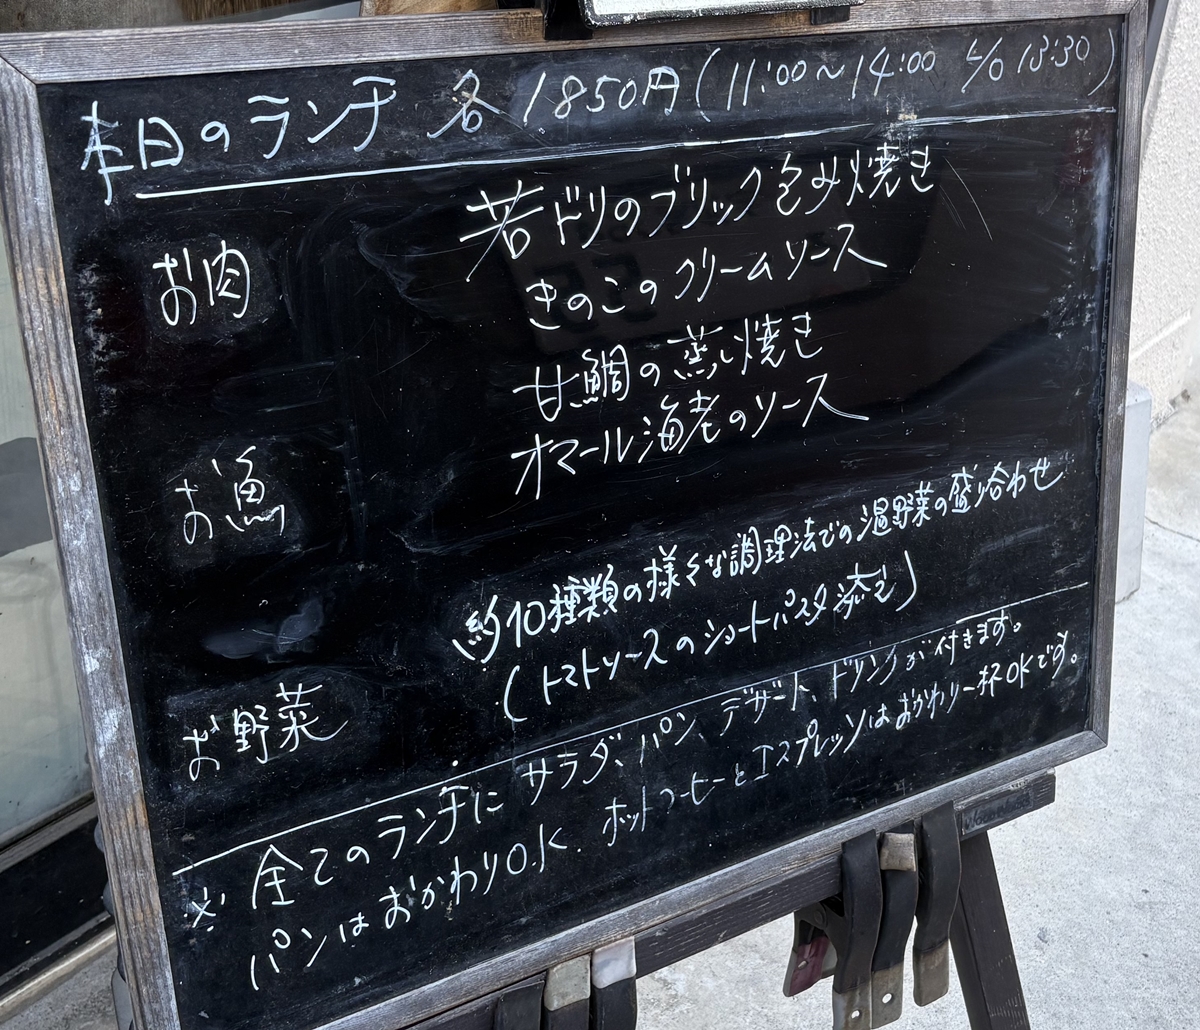 本日のランチ 各1850円(11:00～14:00 L/O 13:30)
お肉 若ドリのブリック包み焼き
きのこのクリームソース
お魚 甘鯛の蒸し焼き
オマール海老のソース
お野菜 約10種類の様々な調理法での温野菜の盛り合わせ
(トマトソースのショートパスタ添え)
※全てのランチに サラダ、パン、デザート、ドリンクが付きます。
パンはおかわりOK. ホットコーヒーとエスプレッソはおかわり一杯OKです。